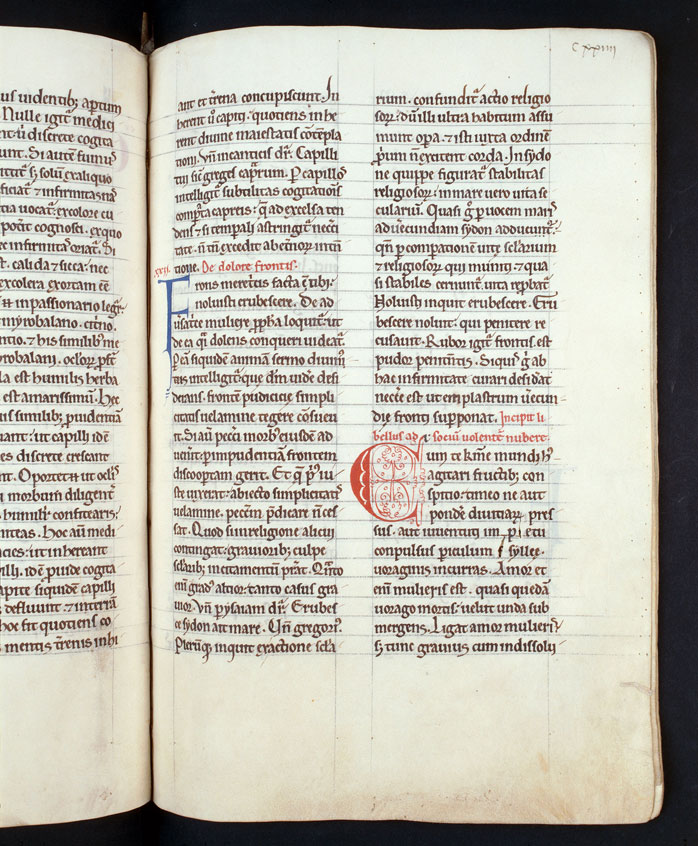 us uidentib; aptum
Nulle igit̄ medici
nt ū discrete cogita
unt. Si aut̄e fumus
ꝗ solū ex aliquo
ficiat ⁊ infirmitas
tia uocat̄. excolore eu
pot̄it cognosci. exquo
infirmitas oriat̄. Si
st. calida ⁊ sicca. nec
excolera exortam ēē
⁊ in passionario legr̄.
myrobalano. citrino.
ntio. ⁊ his similib; me
yrobalani. ocloꝝ post̄
la est humilis herba
est amarissimū. hec
us similib; prudentiā
iant. ut capilli idē
es discrete crescant
nt. Oportet ⁊ ut ocl̄i
morbum diligent̄
humilit̄ confitearis.
intas. Hoc aū medi
cies. ut inhereant
illi. idē prouide cogita
apite siquidem capilli
defluunt. ⁊ interrā
hoc fit quotiens co
mentis t̄renis inhi
C xxiiii
ant et t̄rena concupiscunt. In
herent ū capiti. quotiens inhe
rent diuine maiestatis cōtēpla
tioni. Vn̄ in canticis dr̄. Capilli
tui sic greges capraꝝ. Per capillos
intelligit̄ subtilitas cogitationis
comparata capreis. q̄ ad excelsa ten
dens ⁊ si tempali astringit̄ neces̄si
tate. n̄ tn̄ excedit ab et̄noꝝ inten
tione. De dolore frontis.
XXXII.
Frons meret̄cis facta ē tibi.
noluisti erubescere. De ad
ūsat̄ce muliere ꝓph̄a loquit̄. ut
de ea q̄i dolens conqueri uideat̄.
P ea siquidem animā sermo diuin̄
tus intelligit̄. que dīm uide desi
derans. frontē pudicicie simpli
citatis uelamine tegere cōsueu
it. Si aū pecc̄i morb; eiusdē ad
uen̄it. p inpudentiā frontem
discooptam gerit. Et q̄ p̄us iu
ste uixerat. abiecto simplicitatis
uelamine. pecc̄m p̄dicare n̄ ces
sat. Quod si in religione alicui
contingat. grauioris culpe
sc̄larib; incitamentū p̄stat. Quāto
enī grad; altior. tanto casus gra
uior. Vn̄ p ysaiam dr̄. Erubes
ce sydon ait mare. Qn̄ gregori;.
Pleꝝūq; inquit ex actione scl̄a
rium. confundit̄ actio religio
soꝝ. dū illi ultra habitum assu
munt opa. ⁊ isti iuxta ordinē
p̄pum n̄ excitent corda. In sydo
ne quippe figurat̄ stabilitas
religiosoꝝ. in mare uero uita se
cularium. Quasi g̊ p uocem maris
ad uecundiam sydon adducit̄.
qn̄ p compationem uite sc̄larium
⁊ religiosoꝝ qui muniti ⁊ qua
si stabiles cernunt̄. uita rep̄bat̄.
Noluisti inquit erubescere. Eru
bescere noluit. qui penitere re
cusauit. Rubor igit̄ frontis. est
pudor penitentis. Si quis g̊ ab
hac infirmitate curari desidat
necc̄e est ut emplastrum uecun
die fronti supponat. Incipit li
bellus ad sociū uolente nubere.
Cum te kīne mundi
agitari fluctib; con
spitio. timeo ne aut
pondē diuitiarum pres
sus. aut iuuentuti impetu
conpulsus piculum syllee.
uoraginis incurras. Amor et
enī mulieris est. quasi quedā
uorago mortis. uelut unda sub
mergens. Ligat amor mulieris
ꝗ tunc grauius cum indissolu